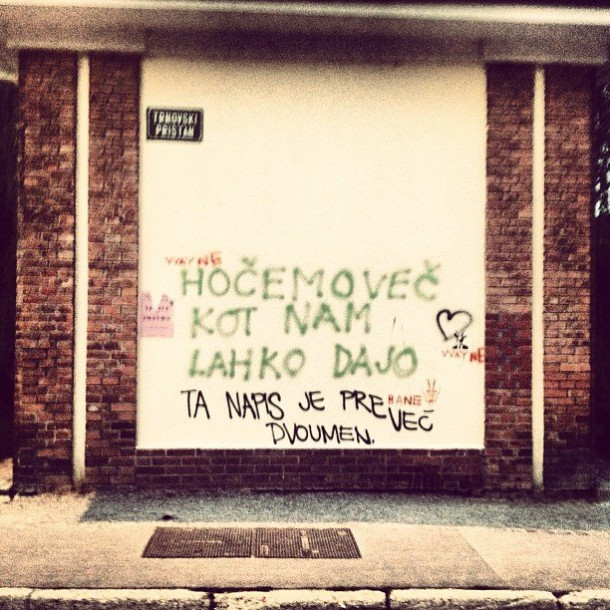 TRNOVSKI
PRISTAN
WAYNE
HOČEMO VEČ
KOT NAM
LAHKO DAJO
WAYNE
TA NAPIS JE PREVEČ
HANE
DVOUMEN.